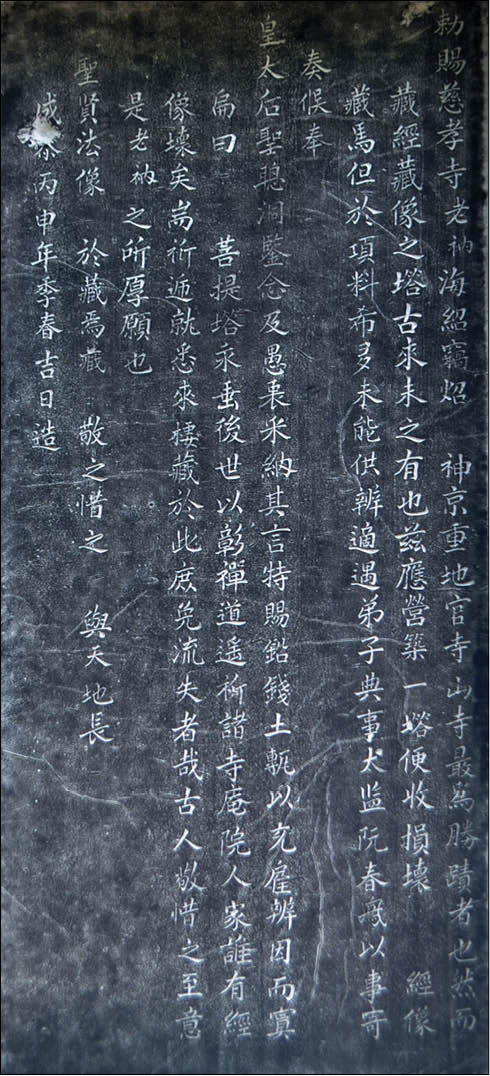 勅賜慈孝寺老衲海紹竊炤　神京重地官寺山寺最為勝蹟者也然而
藏經藏像之塔古來未之有也茲應營築一塔便收損壞　經像
藏焉但於項料希多未能供辦適遇弟子典事太监阮春以事寄
奏俟奉
皇太后聖聰洞鑒念及愚衷采納其言特賜鉛錢土甎以充雇辦因而寘
扁曰　菩提塔永垂後世以彰禪道遥祈諸寺庵院人家誰有經
像壞矣耑祈遞就悉來棲藏於此庶免流失者哉古人敬惜之至意
是老衲之所厚願也
聖賢法像　於藏焉藏　敬之惜之　與天地長
成泰丙申年季春吉日造